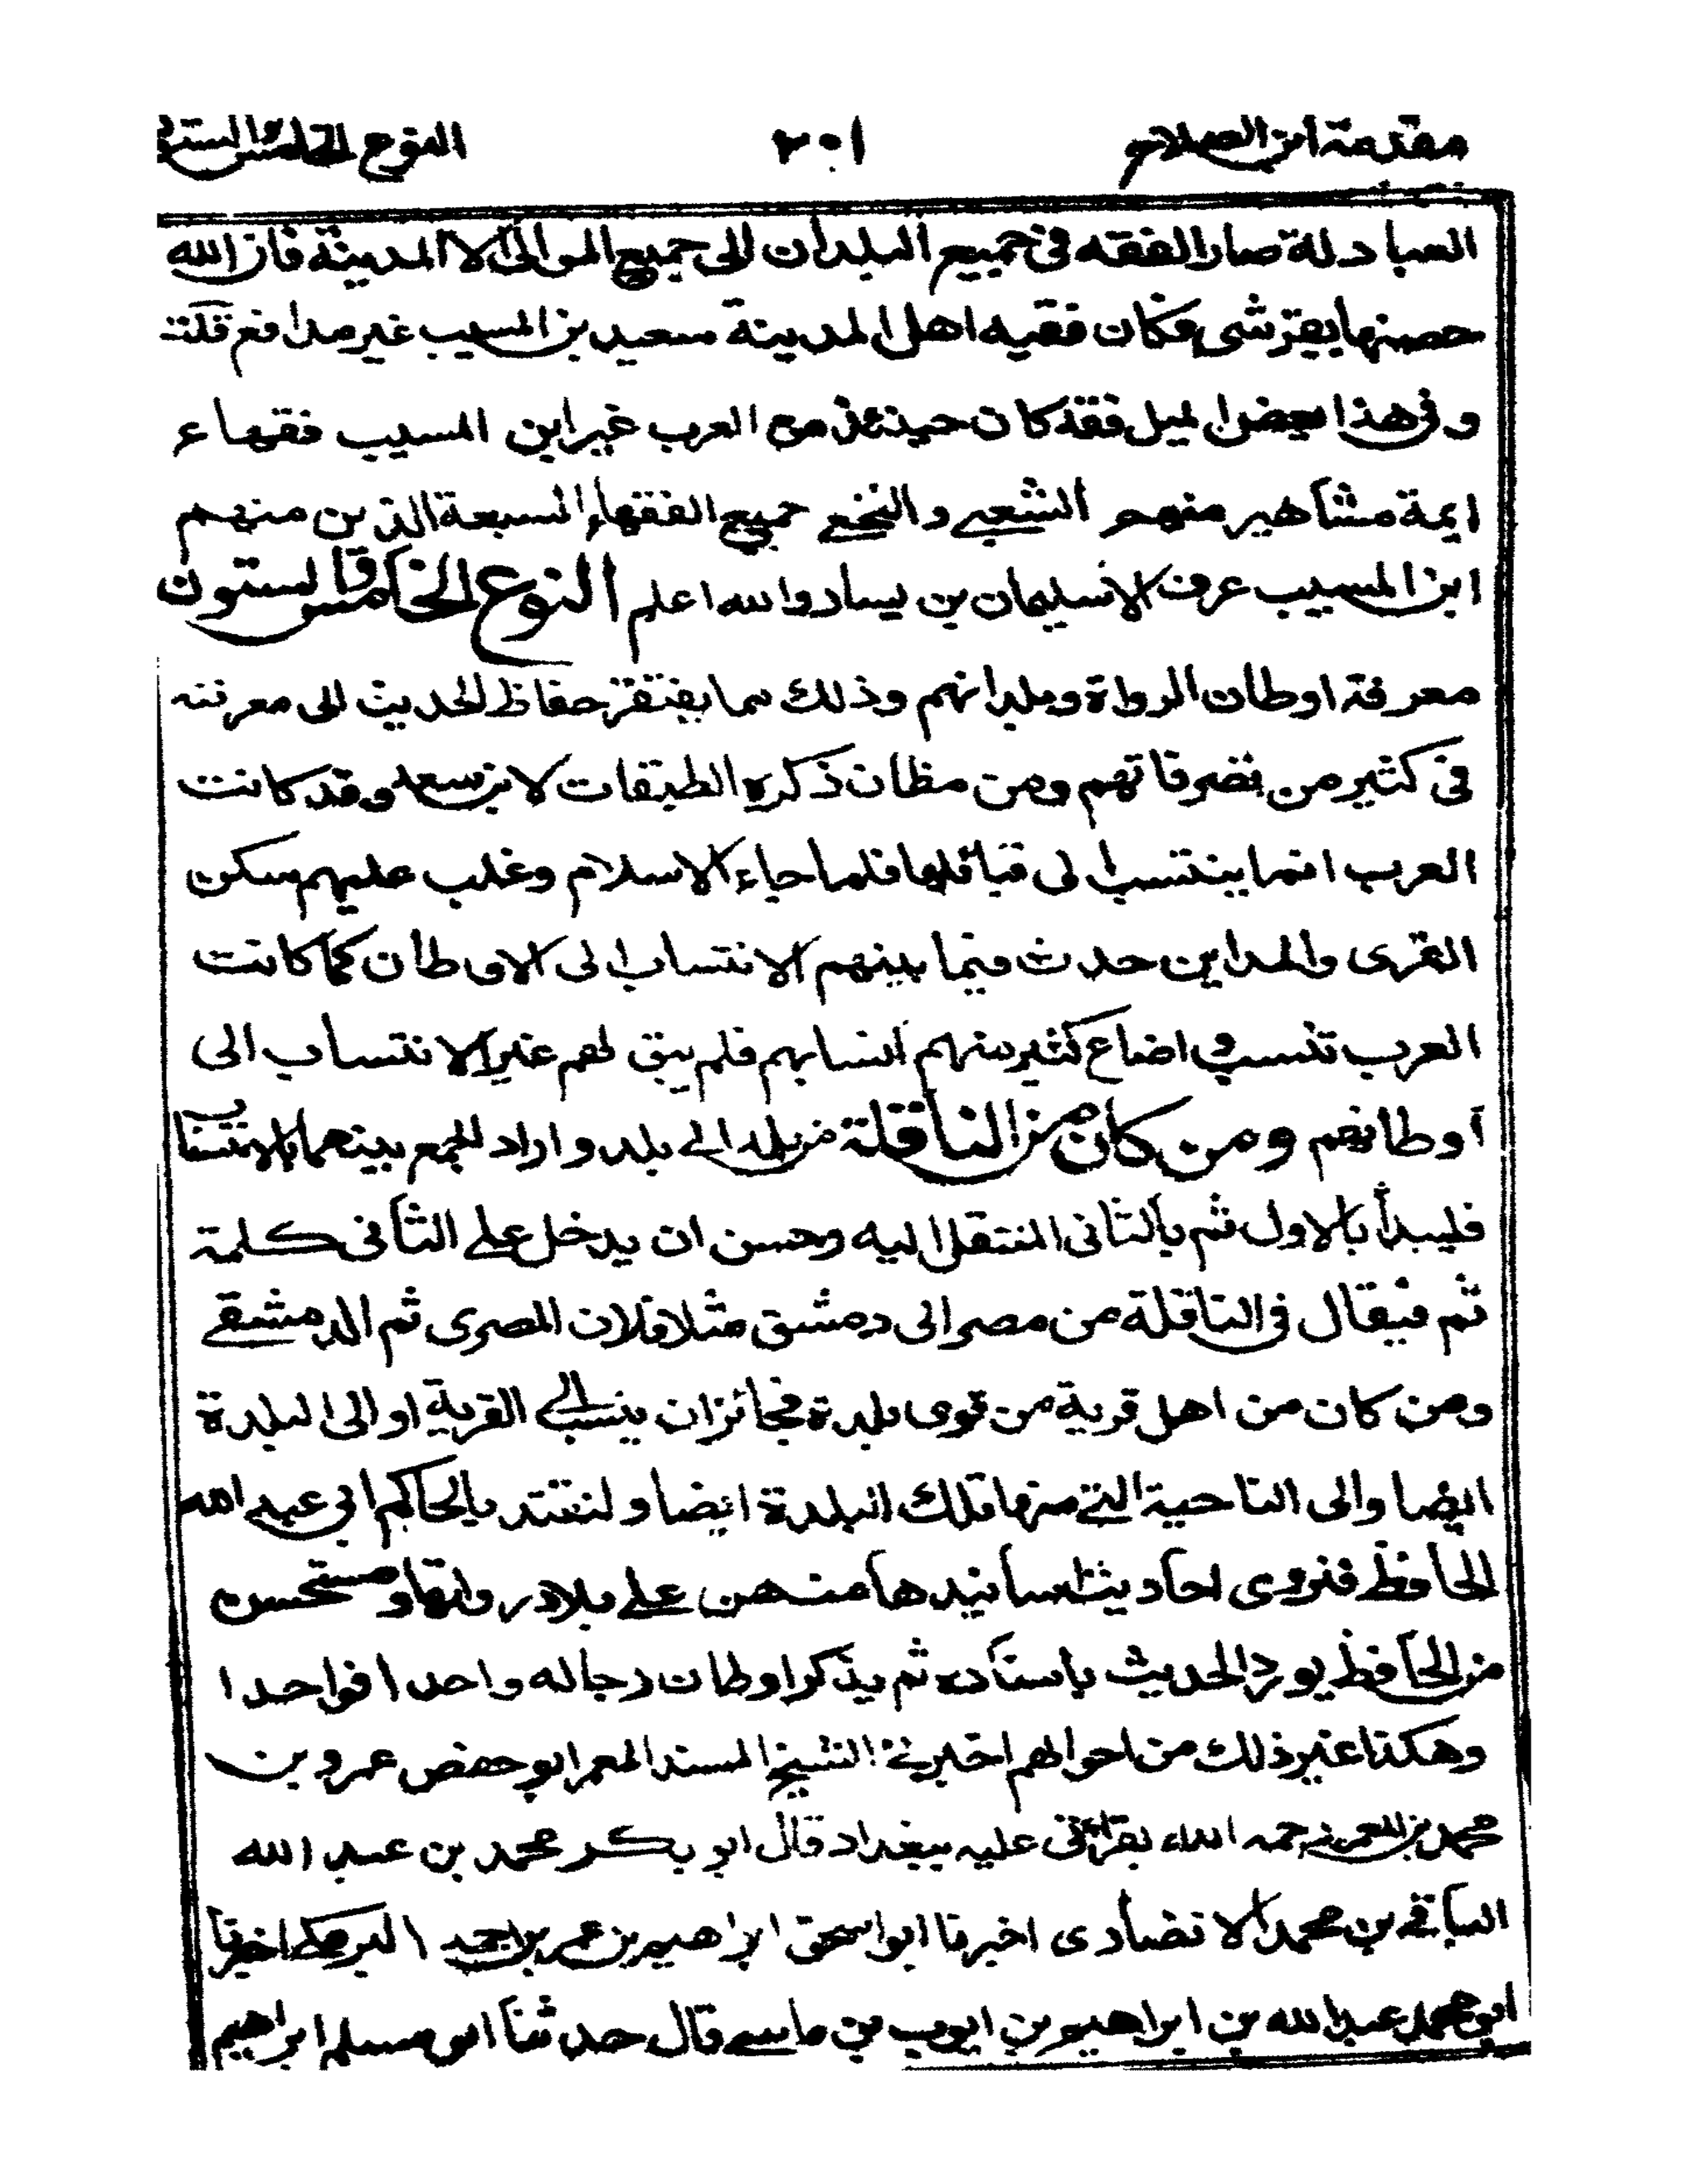 مقدمة ابن الصلاح ٢٠١ النوع الخامس والستون
العبادلة صار الفقه في جميع البلدان الى جميع الموالى الا المدينة فان الله
حصنها بقرشى فكان فقيه اهل المدينة سعيد بن المسيب غير مدافع قلت
وفى هذا بعض الميل فقد كان حينئذ من العرب غير ابن المسيب فقهاء
ايمة مشاهير منهم الشعبي والنخعي جميع الفقهاء السبعة الذين منهم
ابن المسيب عرف الا سليمان بن يسار والله اعلم النوع الخامس والستون
معرفة اوطان الرواة وبلدانهم وذلك مما يفتقر حفاظ الحديث الى معرفته
في كثير من تصرفاتهم ومن مظان ذكره الطبقات لابن سعد وقد كانت
العرب انما ينتسب الى قبائلها فلما جاء الاسلام وغلب عليهم سكن
القرى والمداين حدث فيما بينهم الانتساب الى الاوطان كما كانت
العرب تنسب واضاع كثير منهم انسابهم فلم يبق لهم غير الانتساب الى
أوطانهم ومن كان من الناقلة من بلد الى بلد واراد الجمع بينهما بالانتساب
فليبدأ بالاول ثم بالثانى المنتقل اليه وحسن ان يدخل على الثانى كلمة
ثم فيقال في الناقلة من مصر الى دمشق مثلا فلان المصرى ثم الدمشقي
ومن كان من اهل قرية من قرى بلدة فجائز ان ينسب الى القرية او الى البلدة
ايضا والى الناحية التي منها تلك البلدة ايضا ولنقتد بالحاكم ابي عبد الله
الحافظ فنروى احاديث باسانيدها منبهين على بلاد رواتها ومستحسن
من الحافظ يورد الحديث باسناده ثم يذكر اوطان رجاله واحدا فواحدا
وهكذا غير ذلك من احوالهم اخبرني الشيخ المسند المعمر ابو حفص عمرو بن
محمد بن المعمر رحمه الله بقرائتى عليه ببغداد قال ابو بكر محمد بن عبد الله
الباقي بن محمد الانصارى اخبرنا ابو اسحق ابراهيم بن عمر بن احمد البرمكي اخبرنا
ابو محمد عبد الله بن ابراهيم بن ايوب بن ماسي قال حدثنا ابو مسلم ابراهيم